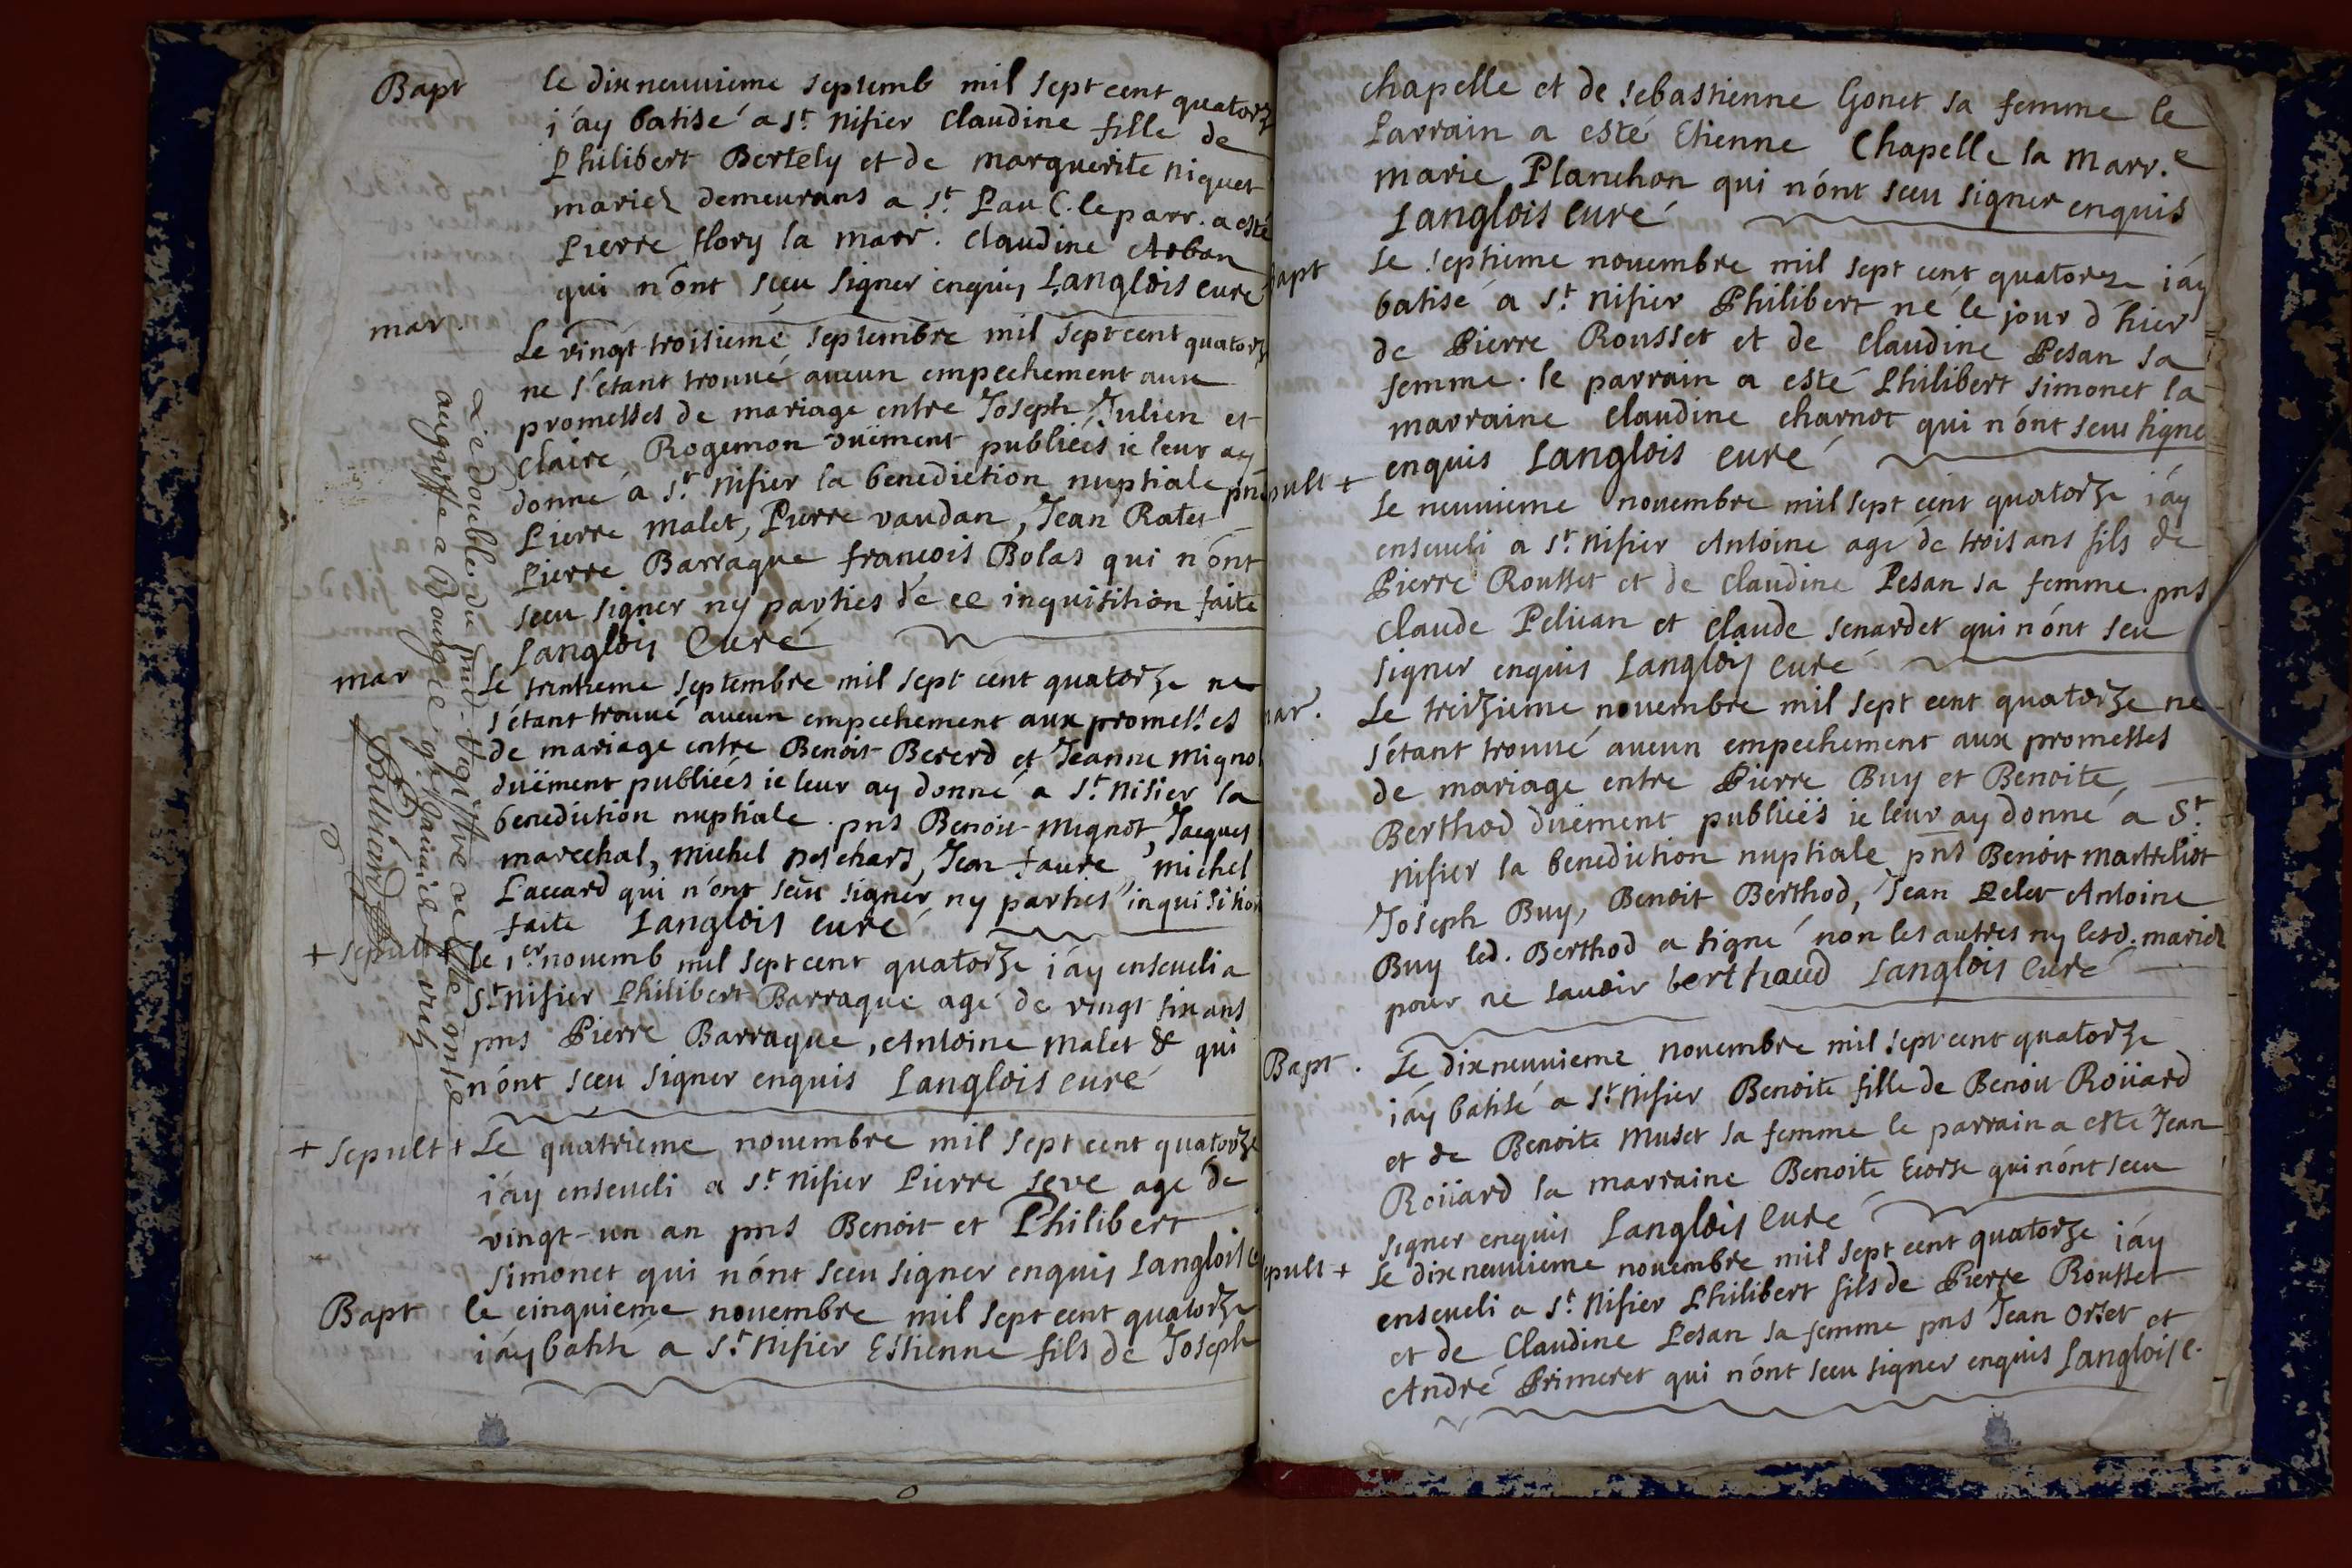 Bapt le dixneuuieme septemb mil sept cent quatorz
j'ay batisé a St. Nisier Claudine fille de
Philibert Bertely et de marguerite niquet
mariez demeurans a St. Paul C. le parr. a esté
Pierre flory la marr. Claudine
qui n'ont sceu signer enquis Langlois curé
mar. Le vingt-troisieme septembre mil sept cent quatorz
ne s'étant trouué aucun empechement aux
promesses de mariage entre Joseph Julien et
Claire Rogemon duëment publiées ie leur ay
donné a St. Nisier la benediction nuptiale pns
Pierre Malet, Pierre vaudan, Jean Ratet
Pierre Barraque francois Bolas qui n'ont
sceu signer ny parties de ce inquisition faite
Langlois Curé
mar Le trentieme septembre mil sept cent quatorze ne
s'étant trouué aucun empechement aux promesses
de mariage entre Benoit Bererd et Jeanne Mignot
duëment publiées ie leur ay donné a St. Nisier la
benediction nuptiale. pns Benoit Mignot, Jacques
marechal, Michel Jean faure, michel
Laccard qui n'ont sceu signer ny parties inquisition
faite Langlois curé
+ sepult + le 1er novemb mil sept cent quatorze i'ay enseueli a
St. Nisier Philibert Barraque agé de vingt six ans
pns Pierre Barraque, Antoine Malet & qui
n'ont sceu signer enquis Langlois curé
+ sepult + Le quatrieme nouembre mil sept cent quatorze
i'ay enseueli a St. Nisier Pierre seve agé de
vingt-un an pns Benoit et Philibert
simonet qui n'ont sceu signer enquis Langlois c
Bapt le cinquieme nouembre mil sept cent quatorze
i'ay batisé a St. Nisier Estienne fils de Joseph
Le double du regittre
au greffe
chapelle et de sebastienne Gonet sa femme le
Parrain a esté Etienne Chapelle la Marr.e
marie Planchon qui n'ont sceu signer enquis
Langlois curé
bapt Le septieme nouembre mil sept cent quatorze i'ay
batisé a St. Nisier Philibert né le jour d'hier
de Pierre Rousset et de Claudine Pesan sa
femme. le parrain a esté Philibert simonet la
marraine Claudine charnot qui n'ont sceu signe
enquis Langlois curé
sepult + Le neuuieme nouembre mil sept cent quatorze i'ay
enseueli a St. Nisier Antoine agé de trois ans fils de
Pierre Rousset et de Claudine Pesan sa femme. pns
Claude Peliuan et Claude senardet qui n'ont seu
signer enquis Langlois curé
mar. Le treizieme nouembre mil sept cent quatorze ne
s'étant trouué aucun empechement aux promesses
de mariage entre Pierre Buy et Benoite
Berthod duëment publiées ie leur ay donné a St.
Nisier la benediction nuptiale pns Benoit
Joseph Buy, Benoit Berthod, Jean Antoine
Buy led. Berthod a signé non les autres ny lesd. mariez
pour ne sauoir berthaud Langlois Curé
Bapt. Le dixneuuieme nouembre mil sept cent quatorze
i'ay batisé a St. Nisier Benoite fille de Benoit Roüard
et de Benoite Muset sa femme le parrain a esté Jean
Roüard la marraine Benoite Ecorse qui n'ont sceu
signer enquis Langlois Curé
sepult + Le dixneuuieme nouembre mil sept cent quatorze i'ay
enseueli a St. Nisier Philibert fils de Pierre Rousset
et de Claudine Pesan sa femme pns Jean Orset et
André Primeret qui n'ont sceu signer enquis Langlois c.